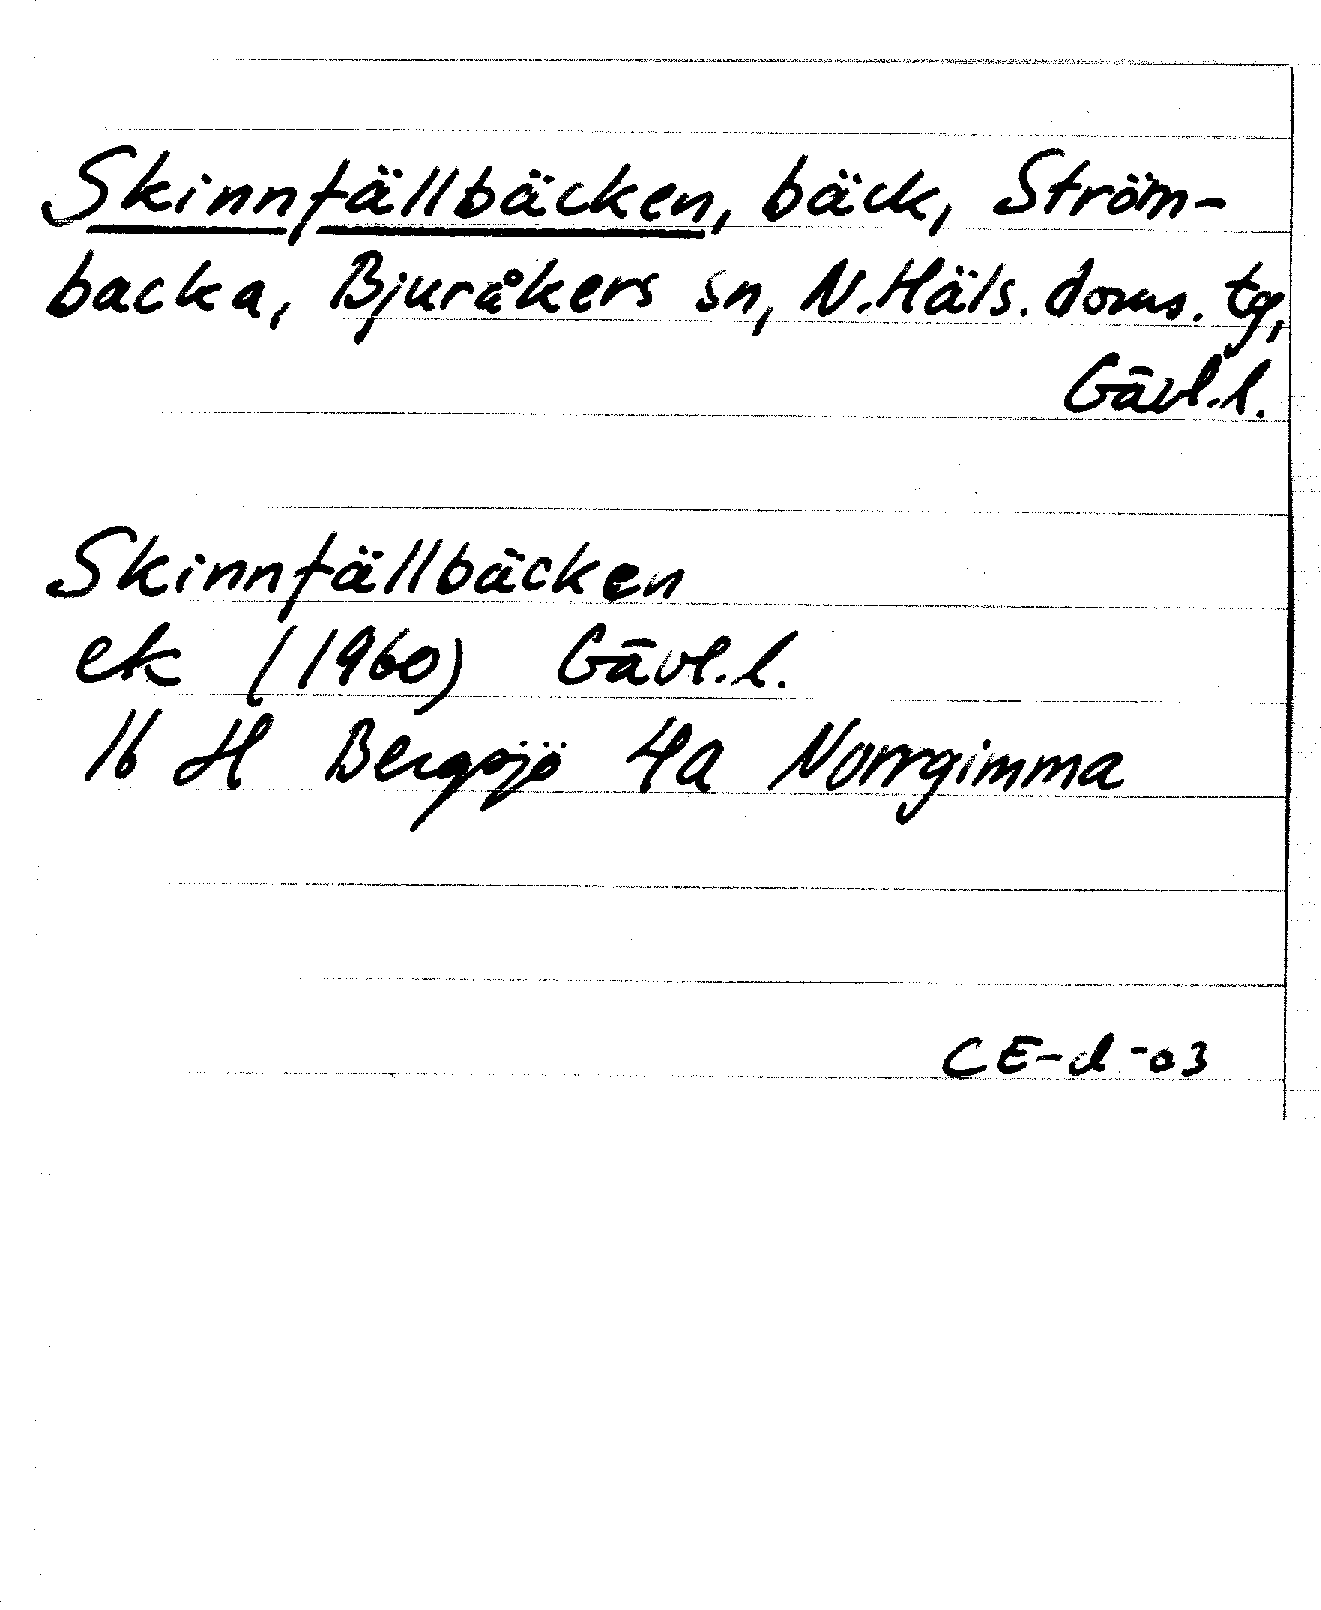 Skinnfällbäcken, bäck, Ström-
backa, Bjuråkers sn, N.Häls. doms. tg,
Gävl.l.
Skinnfällbäcken
ek (1960) Gävl.l.
16 H Bergsjö 4a Norrgimma
CE-d-03